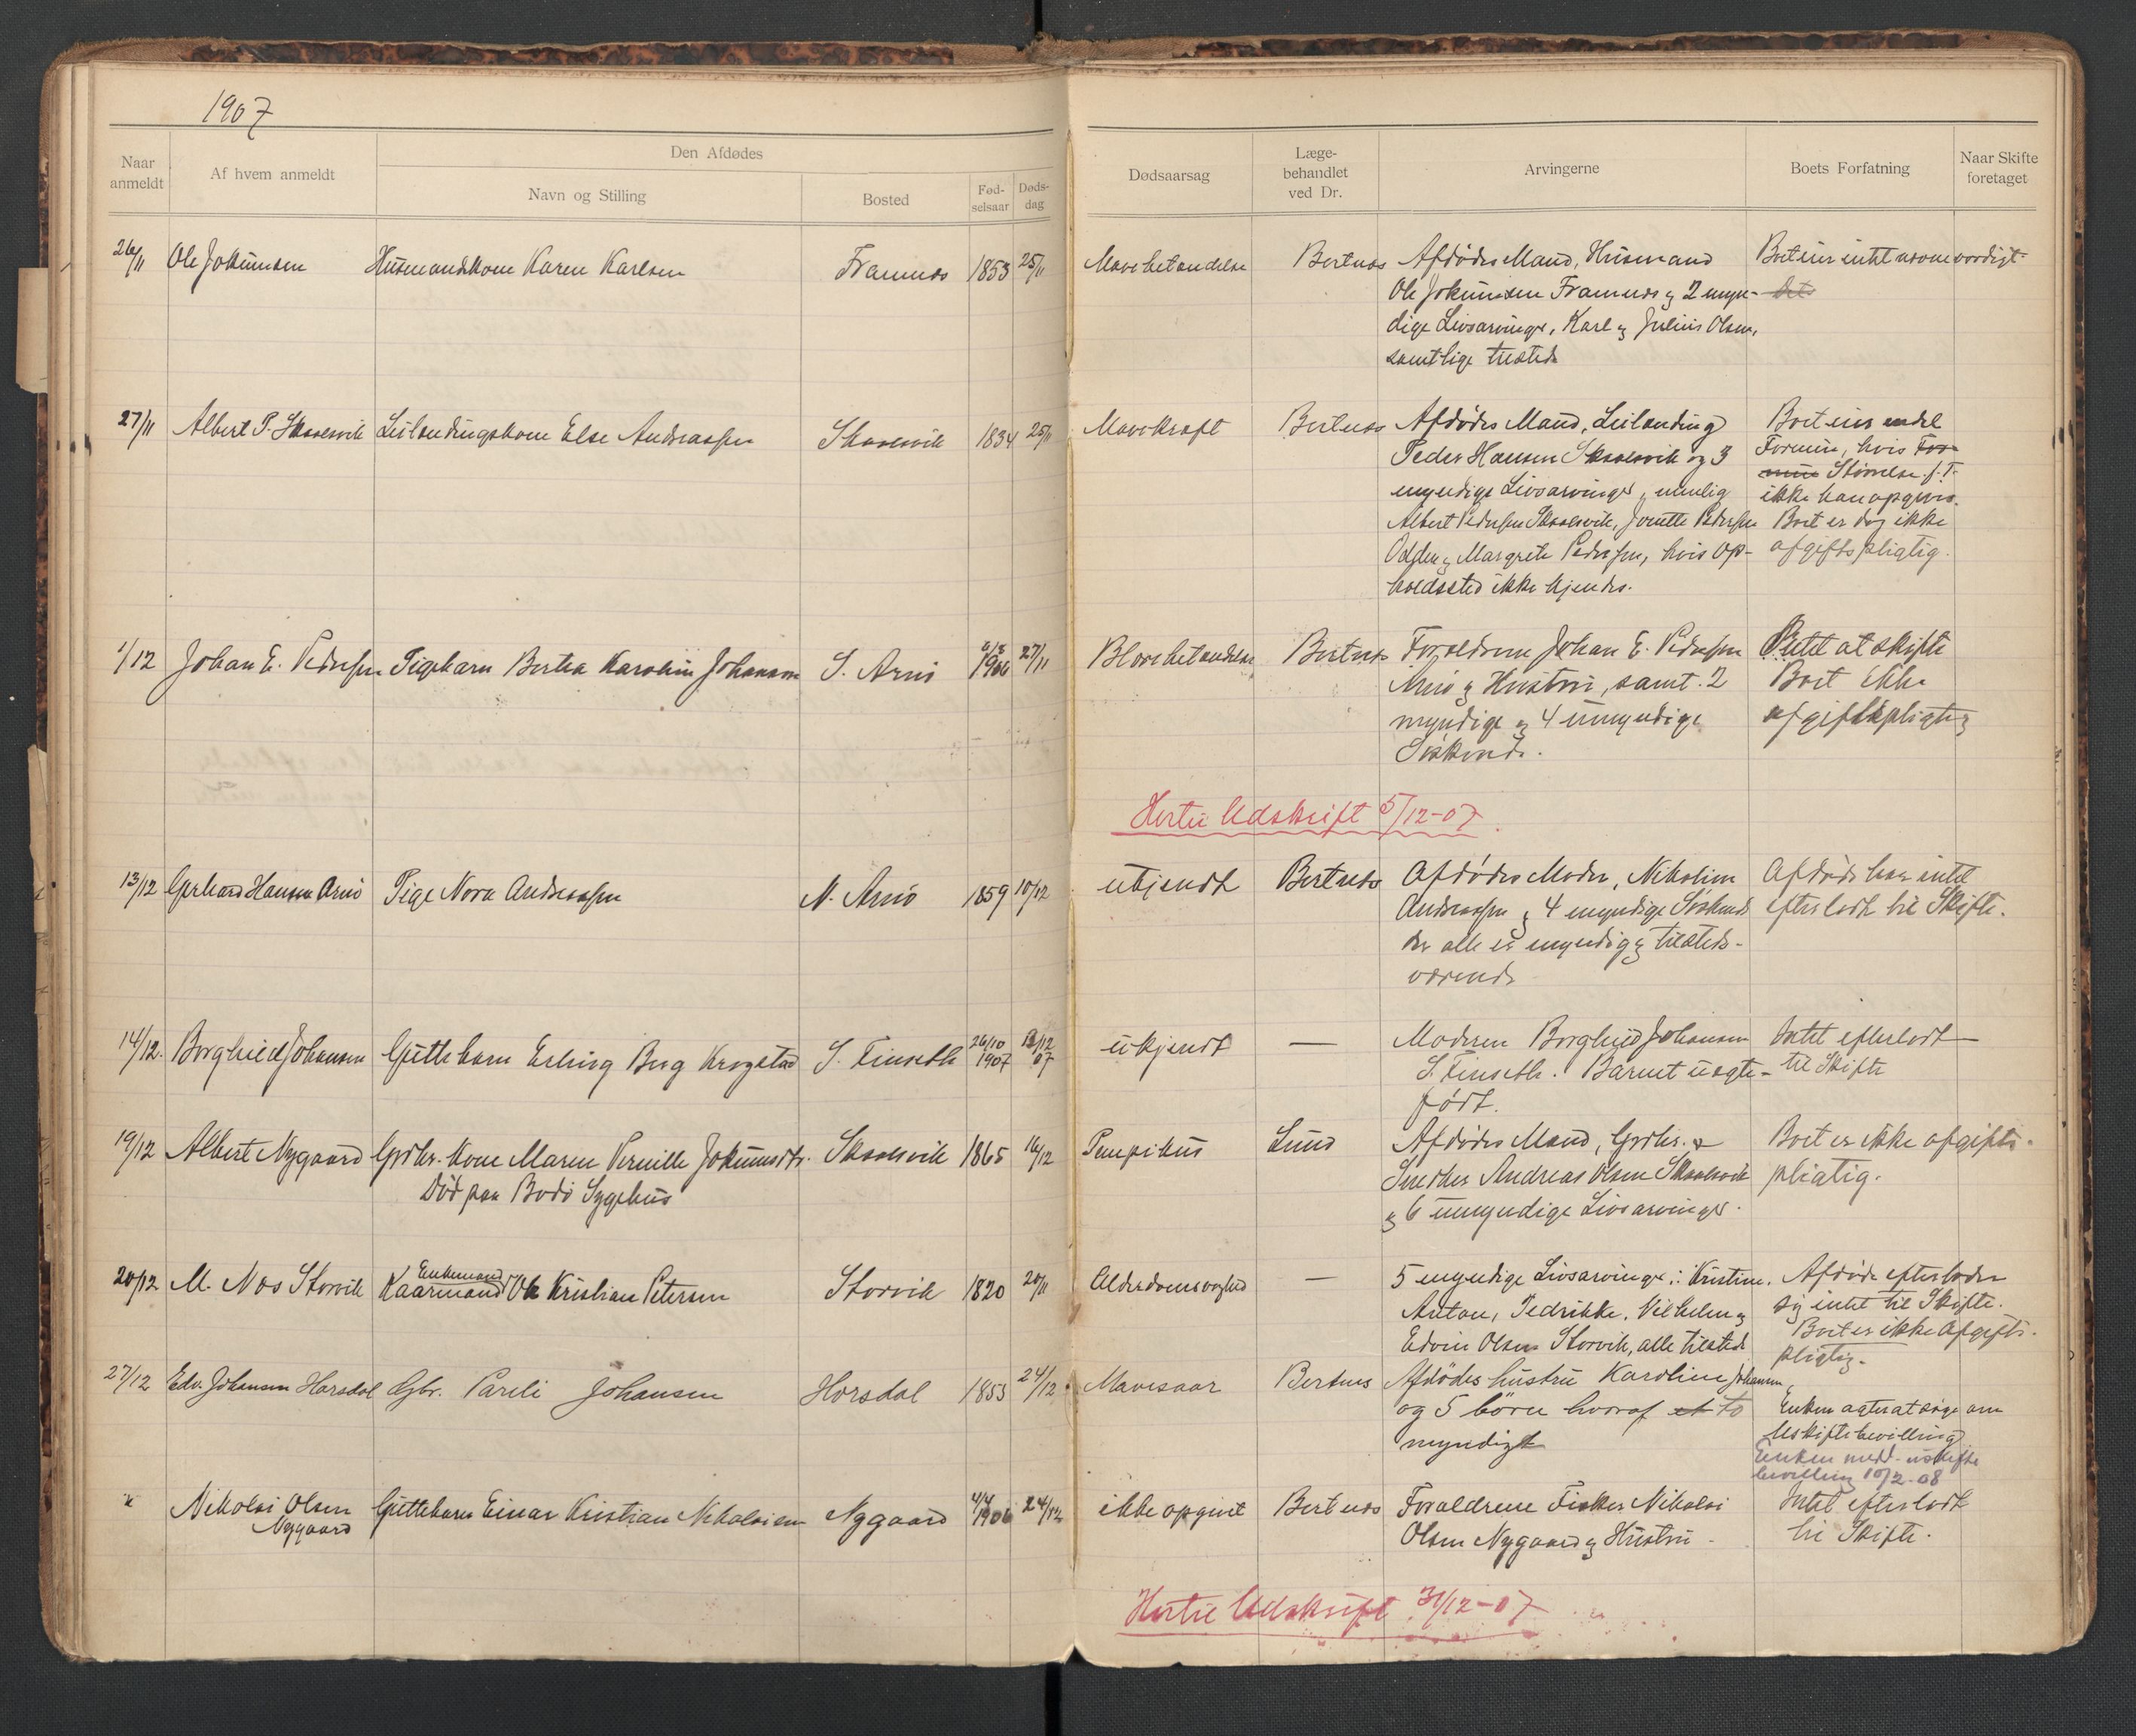 1907
Naar anmeldt
Af hvem anmeldt
Den Afdødes
Navn og Stilling
Bosted
Fød-selsaar
Døds-dag
Dødsaarsag
Læge-behandlet ved Dr.
Arvingerne
Boets Forfatning
Naar Skifte foretaget
26/11 Ole Jokumsen Husmandskone Karen Karlsen Framnes 1853 25/11 Mavebetændelse Bertnes Afdødes Mand, Husmand
Ole Jokumsen Framnes og 2 myn-
dige Livsarvinger, Karl og Julius Olsen,
samtlige tilsteds
Boet eier intet
27/11 Albert P. Skaalsvik Leilændingskone Else Andreassen Skaalsvik 1834 25/11 Mavekræft Bertnes Afdødes Mand, Leilænding
Peder Hansen Skaalsvik og 3
myndige Livsarvinger, nemlig
Albert Pedersen Skaalsvik, Pedersen
Odden og Margrete Pedersen, hvis Op-
holdssted ikke kjendes.
Boet eier endel
Formue, hvis For-
mue Størrelse f. T.
ikke kan opgives.
Boet er dog ikke
afgiftspligtig.
1/12 Johan E. Pedersen Pigebarn Bertea Karoline Johansen S. Arnö 1906 27/11 Bertnes Forældrene Johan E. Pedersen
Arnö og Hustru, samt 2
myndige og 4 umyndige
Söskende.
Intet at skifte
Boet ikke
afgiftspligtig
Hertil Udskrift 5/12-07.
13/12 Gerhard Hansen Arnö Pige Nora Andreassen N. Arnö 1859 10/12 ukjendt Bertnes Afdødes Moder, Nikoline
Andreassen og 4 myndige Söskende
der alle er myndig og tilsteds-
værende
Afdøde har intet
efterladt til Skifte.
14/12. Borghild Johansen Guttebarn Erling Berg Krogstad S. Finseth 26/10 1907 12/12 07 ukjendt — Moderen Borghild Johansen
S. Finseth. Barnet uægte-
født.
Intet efterladt
til Skifte
19/12 Albert Nygaard Grdbr. Kone Maren Pernille Jokumsdtr. Skaalsvik 1865 16/12 Pempikus Lund Afdødes Mand, Grdbr. &
Snedker Andreas Olsen Skaalsvik
og 6 umyndige Livsarvinger.
Död paa Bodö Sygehus
Boet er ikke afgifts-
pligtig.
20/12 M. Næs Storvik Enkemand
Kaarmand Ole Kristian Petersen Storvik 1820 20/11 Alderdomssvaghed — 5 myndige Livsarvinger: Kristine,
Anton, Pedrikke, Vilhelm og
Edvin Olsen Storvik, alle tilsted
Afdøde efterlader
sig intet til Skifte.
Boet er ikke Afgifts-
pligtig.
27/12 Edv. Johansen Horsdal Gbr. Pareli Johansen Horsdal 1853 24/12 Mavesaar Bertnes Afdødes hustru Karoline Johansen
og 5 börn hvoraf et to
myndigt
Enken agter at söge om
Uskiftebevilling
Enken medd. uskifte
bevilling 10/2-08
" Nikolai Olsen
Nygaard
Guttebarn Einar Kristian Nikolaisen Nygaard 4/4 1906 24/12 ikke opgivet Bertnes Forældrene Fisker Nikolai
Olsen Nygaard og Hustru -
Intet efterladt
til Skifte.
Hertil Udskrift 31/12-07